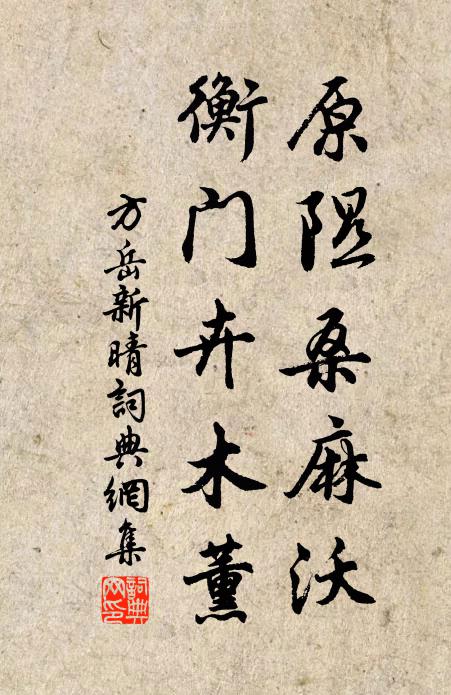 原隰桑麻沃
衡门卉木薰
方岳新晴詞典網集
詞典
网印